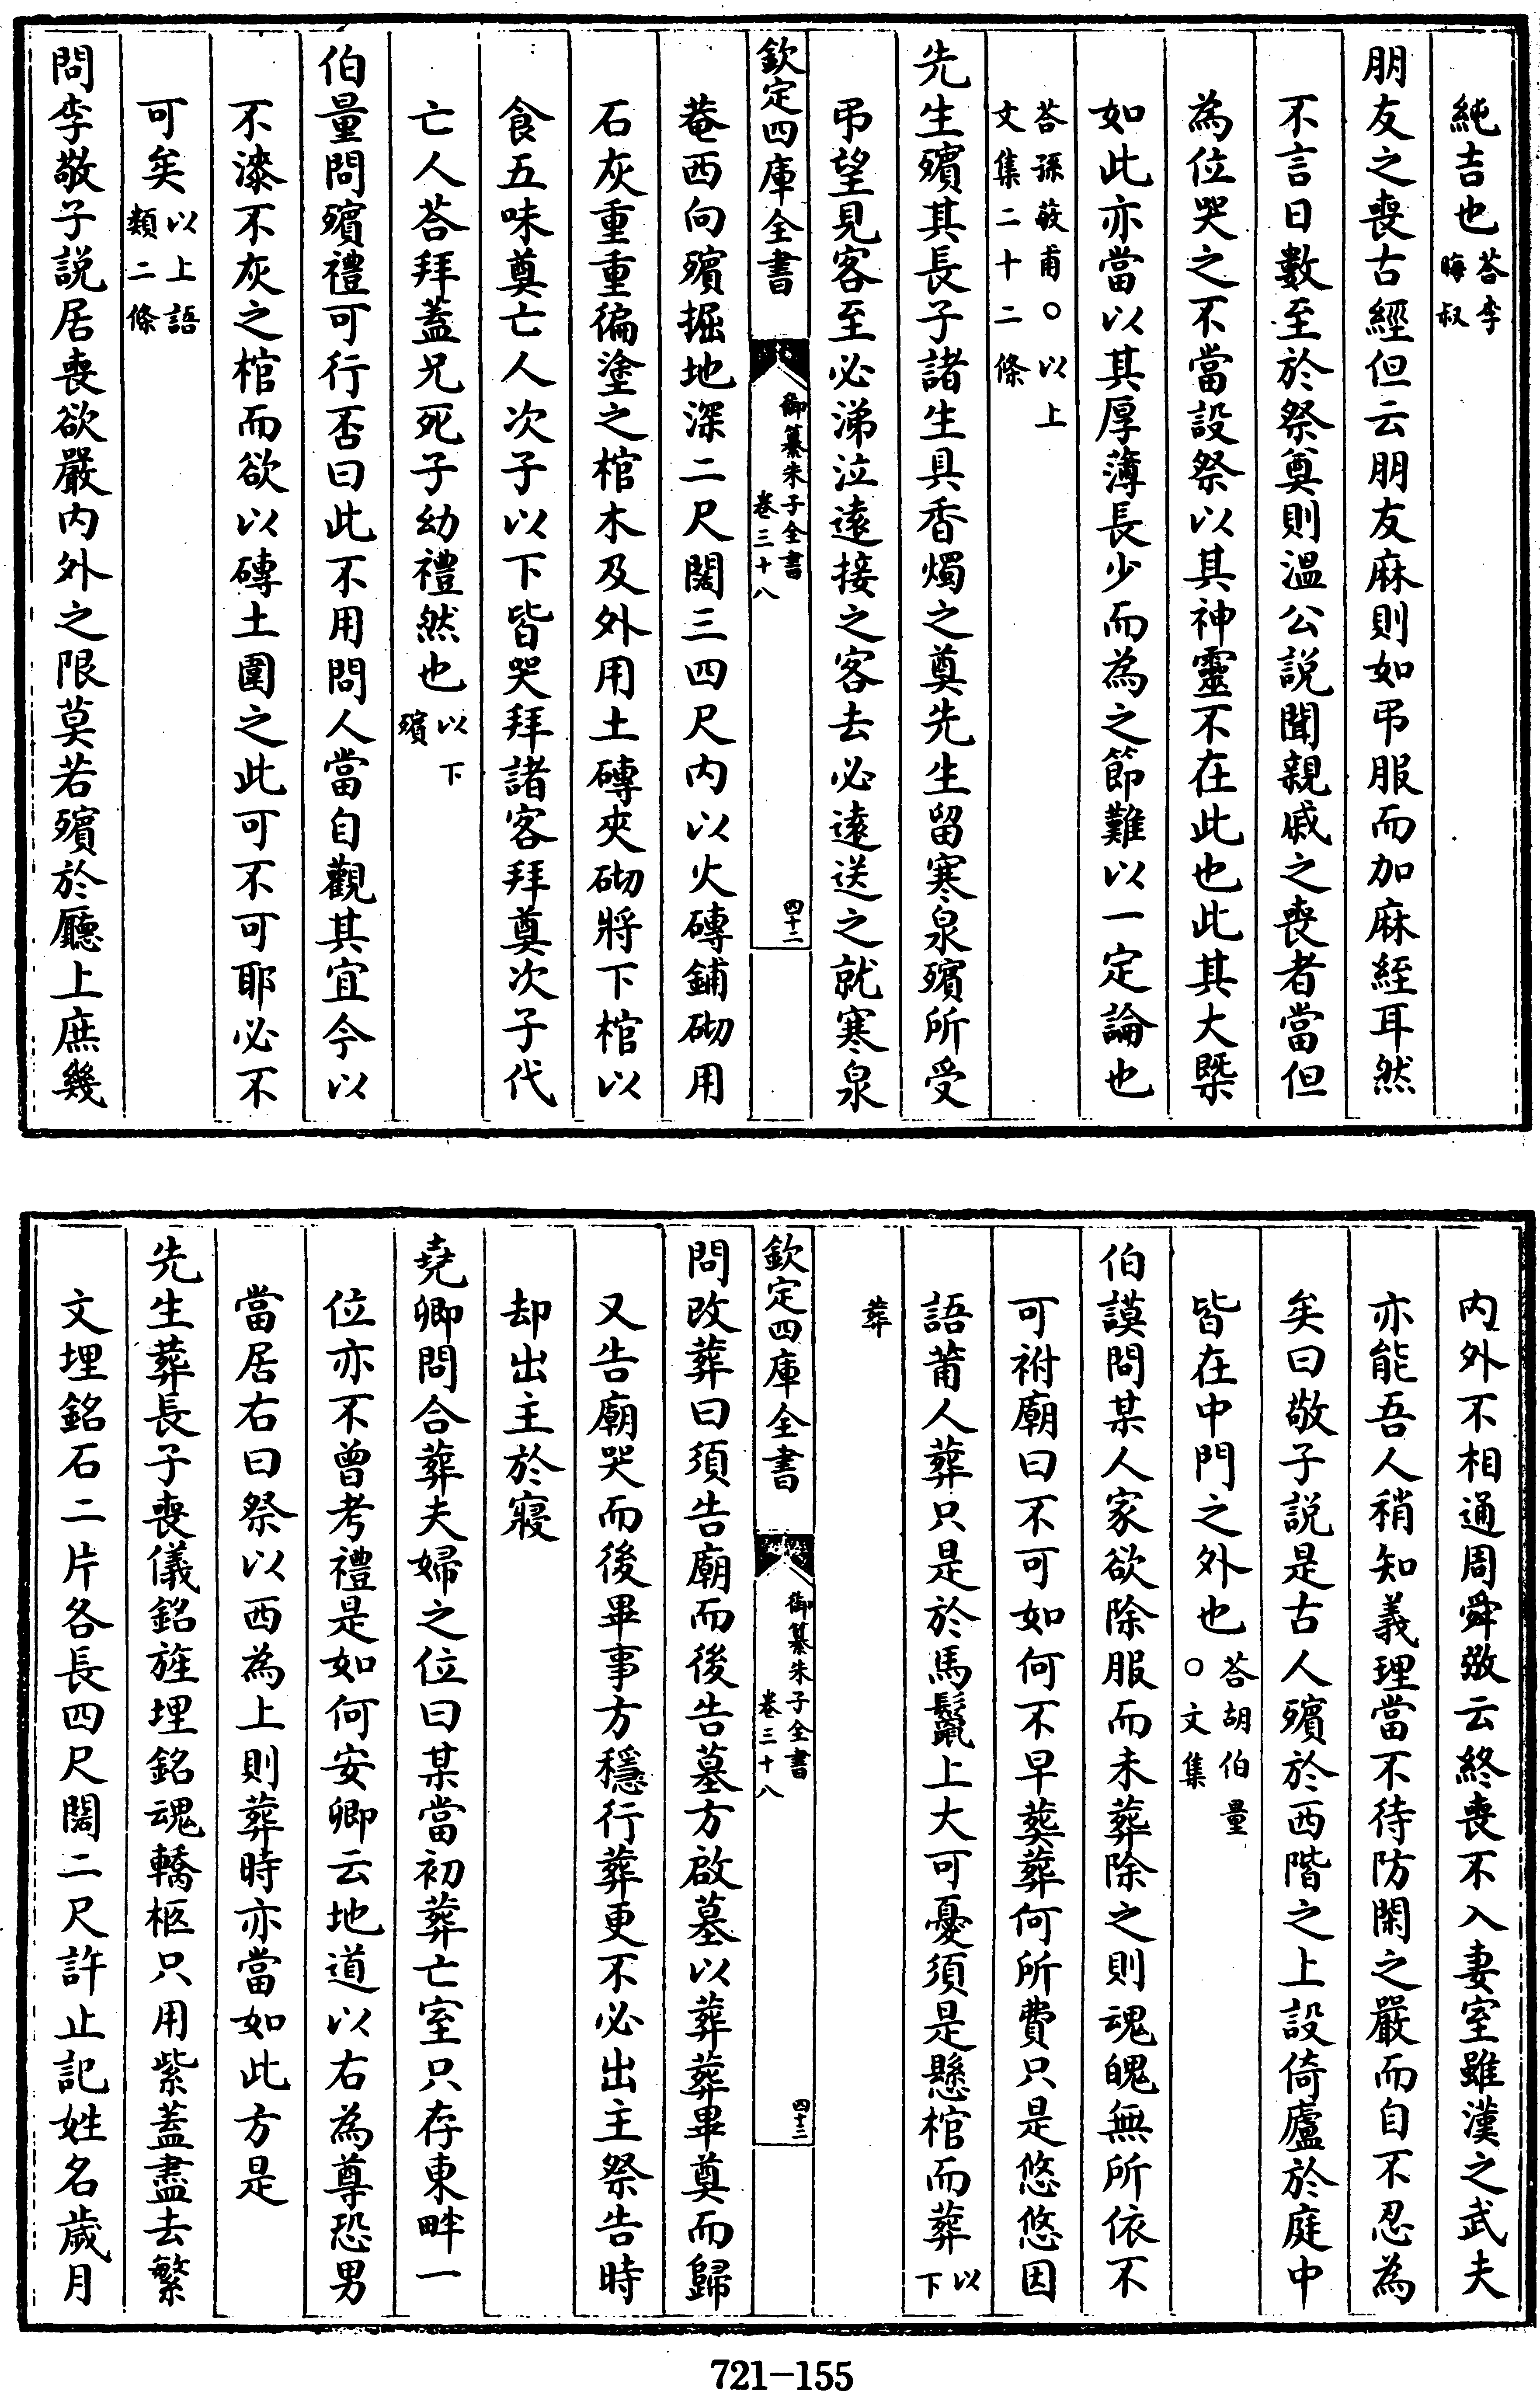 純吉也荅李晦叔
朋友之喪古經但云朋友麻則如弔服而加麻絰耳然
不言日數至於祭奠則溫公説聞親戚之喪者當但
為位哭之不當設祭以其神靈不在此也此其大槩
如此亦當以其厚薄長少而為之節難以一定論也
荅孫敬甫○以上文集二十二條
先生殯其長子諸生具香燭之奠先生留寒泉殯所受
弔望見客至必涕泣遠接之客去必遠送之就寒泉
欽定四庫全書
御纂朱子全書
卷三十八
四十二
菴西向殯掘地深二尺闊三四尺内以火磚鋪砌用
石灰重重徧塗之棺木及外用土磚夾砌將下棺以
食五味奠亡人次子以下皆哭拜諸客拜奠次子代
亡人荅拜蓋兄死子幼禮然也以下殯
伯量問殯禮可行否曰此不用問人當自觀其宜今以
不漆不灰之棺而欲以磚土圍之此可不可耶必不
可矣以上語類二條
問李敬子説居喪欲嚴内外之限莫若殯於廳上庶幾
内外不相通周舜弼云終喪不入妻室雖漢之武夫
亦能吾人稍知義理當不待防閑之嚴而自不忍為
矣曰敬子説是古人殯於西階之上設倚廬於庭中
皆在中門之外也荅胡伯量○文集
伯謨問某人家欲除服而未葬除之則魂魄無所依不
可祔廟曰不可如何不早葬葬何所費只是悠悠因
語莆人葬只是於馬鬛上大可憂須是懸棺而葬以下
葬
欽定四庫全書
御纂朱子全書
卷三十八
四十三
問改葬曰須告廟而後告墓方啟墓以葬葬畢奠而歸
又告廟哭而後畢事方穩行葬更不必出主祭告時
却出主於寢
堯卿問合葬夫婦之位曰某當初葬亡室只存東畔一
位亦不曾考禮是如何安卿云地道以右為尊恐男
當居右曰祭以西為上則葬時亦當如此方是
先生葬長子喪儀銘旌埋銘魂轎柩只用紫蓋盡去繁
文埋銘石二片各長四尺闊二尺許止記姓名歲月
721-155